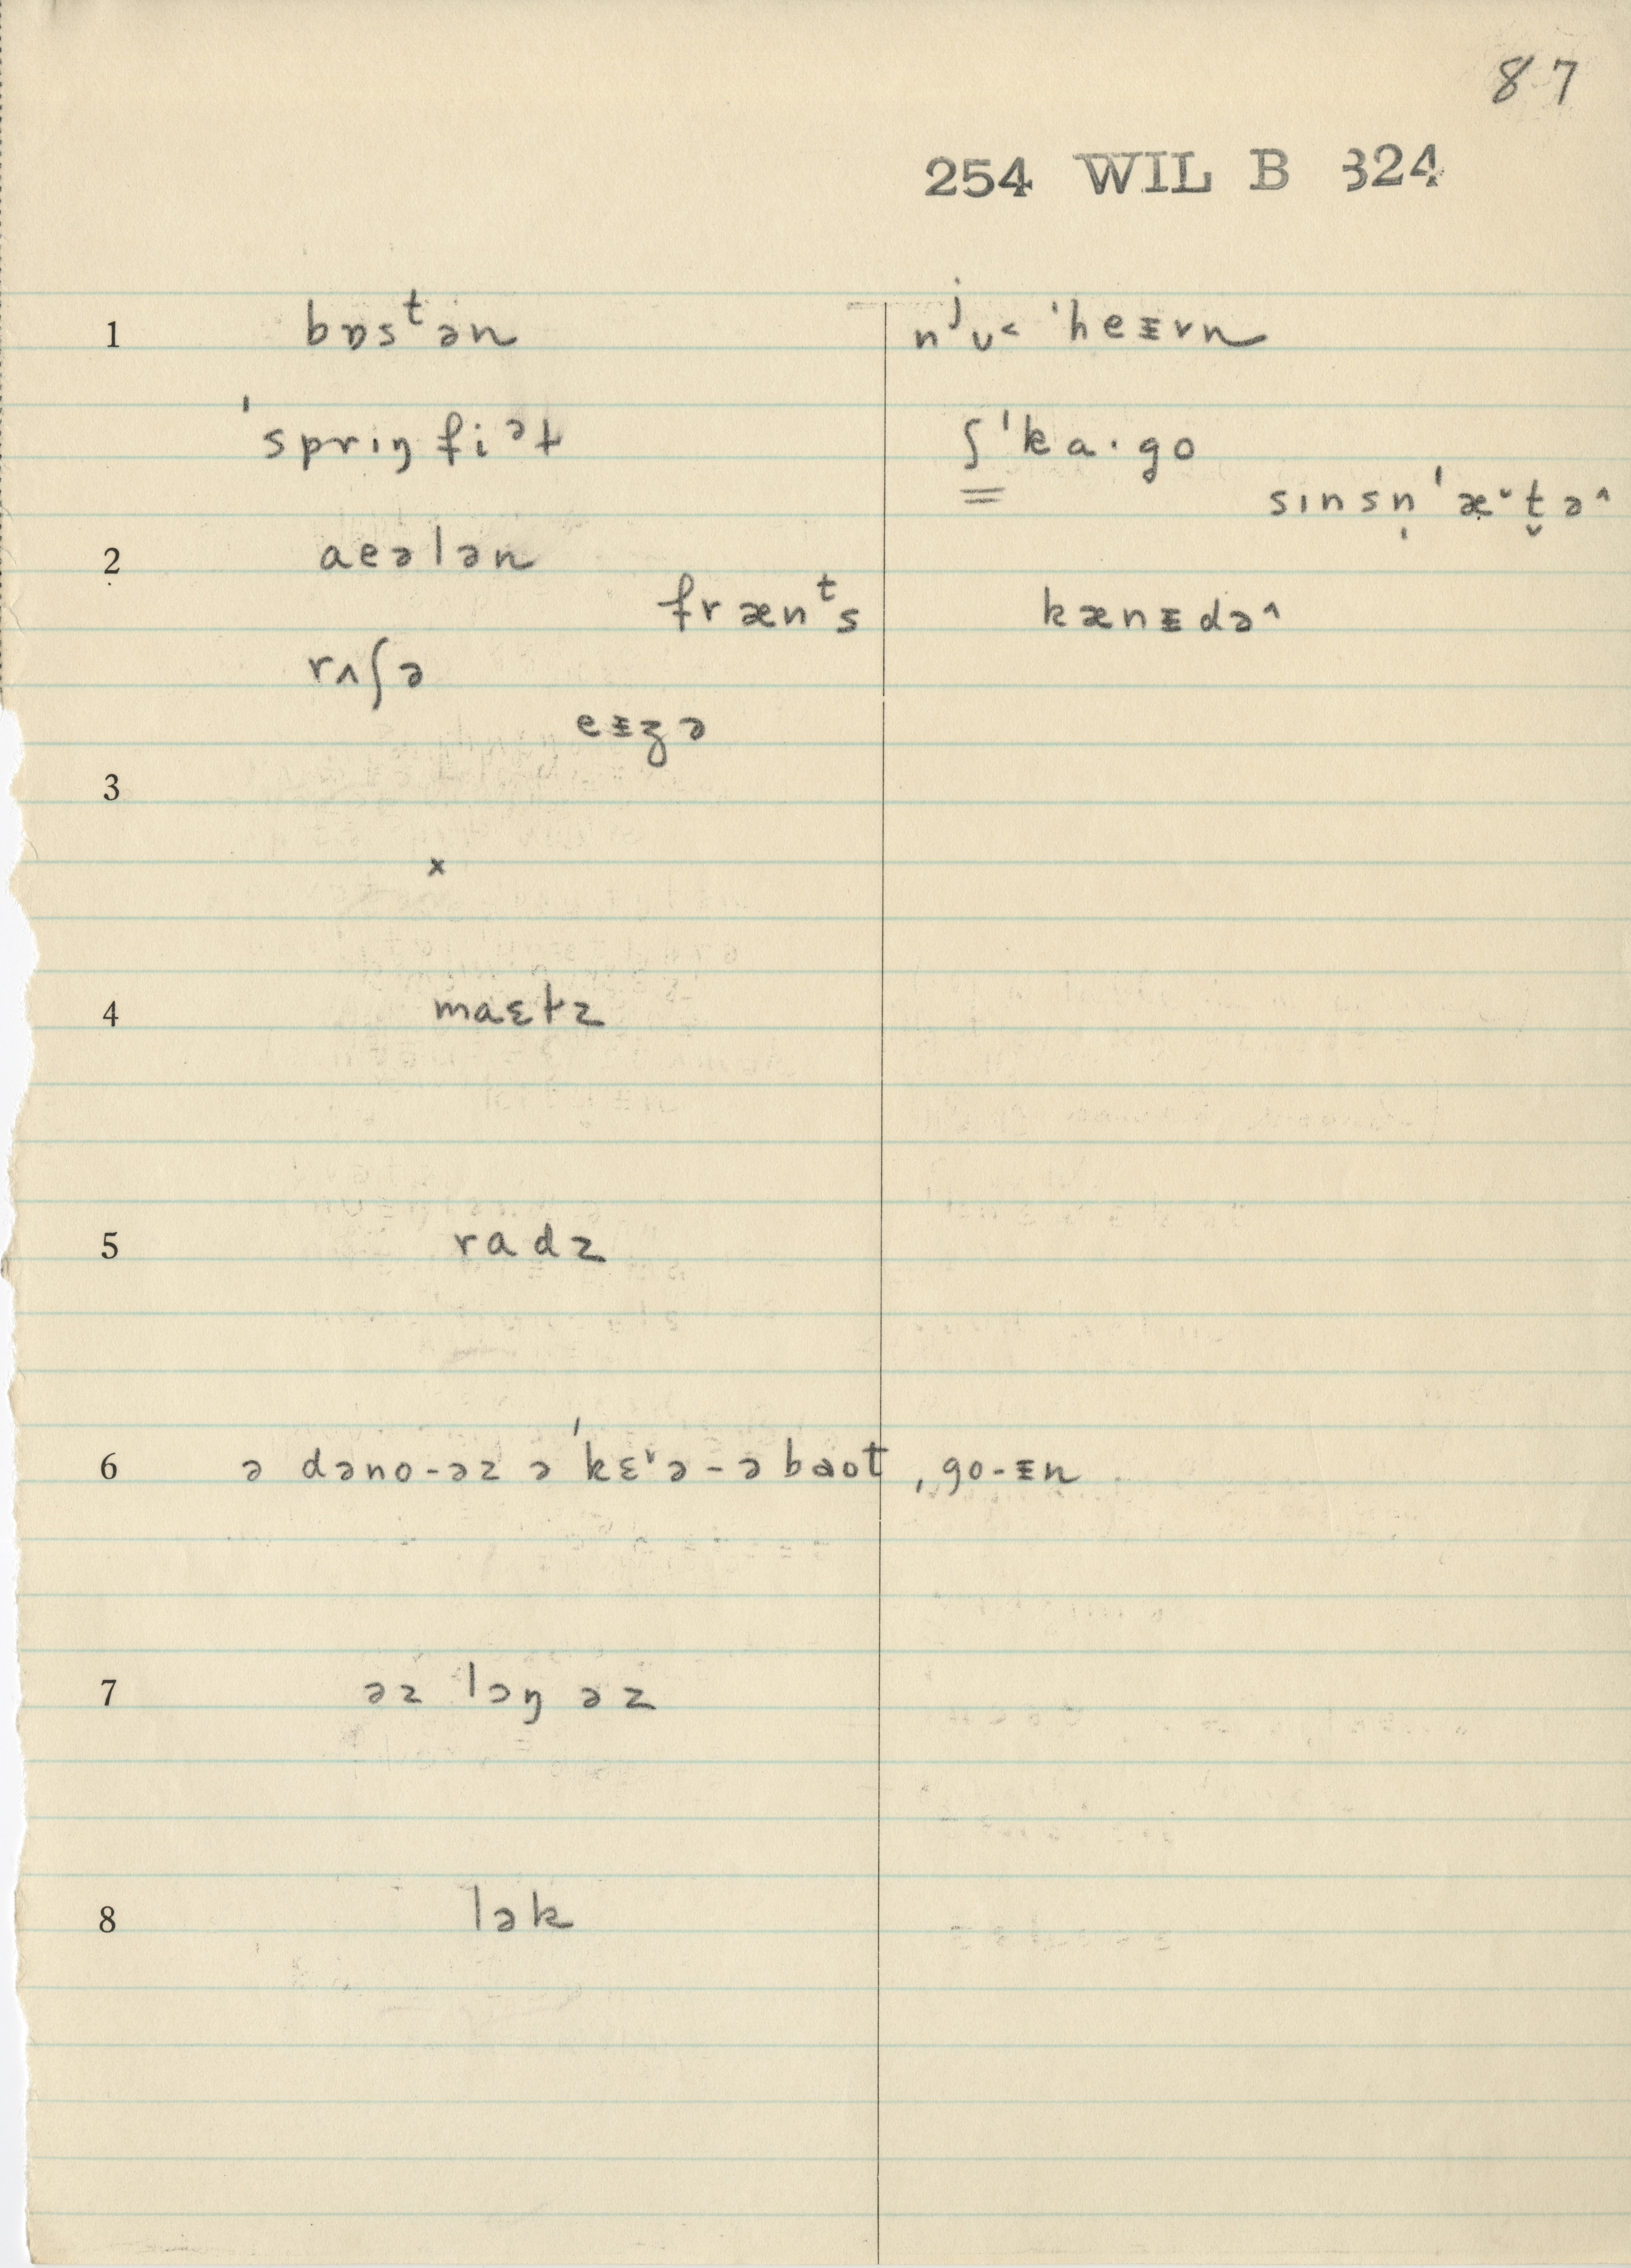 87
254 WIL B 324
1 bɒsᵗən nʲᴜ˂ ˈheᵻvn
ˈsprɪŋfiᵊɫ ʃˈka·go
sɪnsn̩ˈæ˅t̬ə^
2 aeələn
frænᵗs kænᵻdə^
rʌʃə
eᵻʒə
3
x
4 maɛɫz
5 radz
6 ə dəno-əz ə ˈkɛ˅ə-ə baot, go-ᵻn
7 əz lɔŋ əz
8 lək